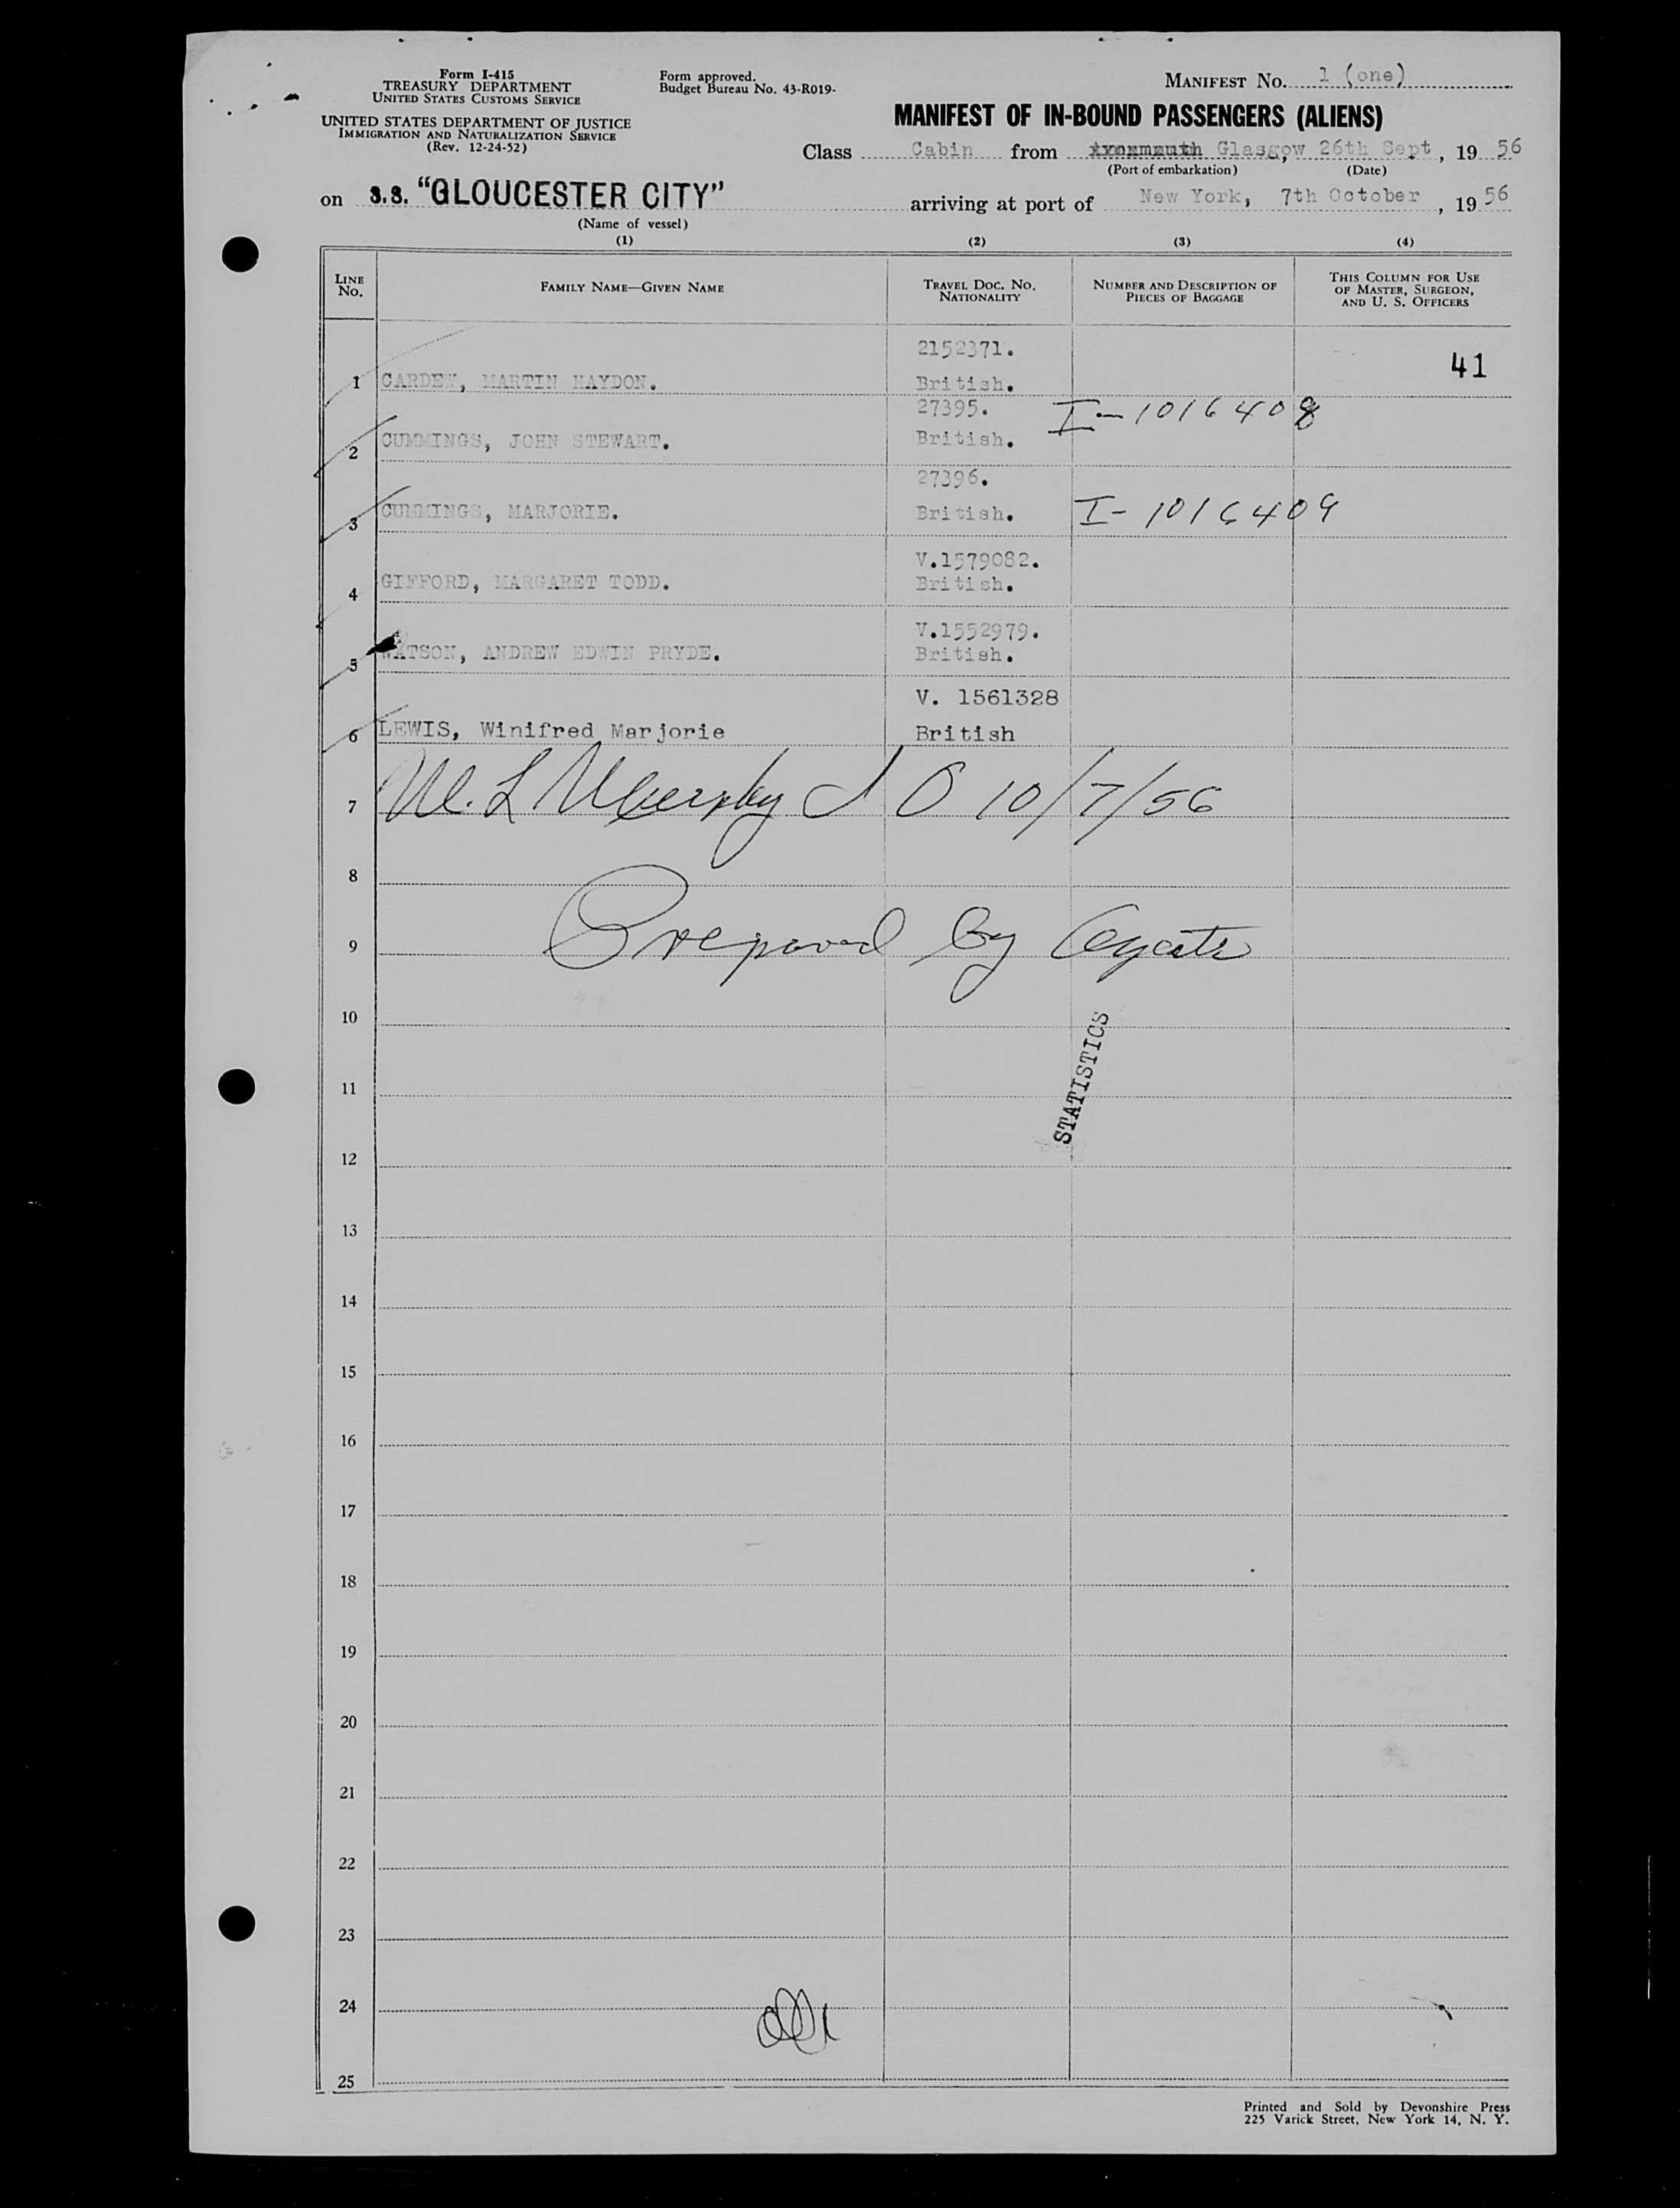 Form I-415
TREASURY DEPARTMENT
UNITED STATES CUSTOMS SERVICE
UNITED STATES DEPARTMENT OF JUSTICE
IMMIGRATION AND NATURALIZATION SERVICE
(Rev. 12-24-52)
Form approved.
Budget Bureau No. 43-R019-
MANIFEST NO. 1 (one)
MANIFEST OF IN-BOUND PASSENGERS (ALIENS)
Class Cabin from Glasgow, 26th Sept, 19 56
(Port of embarkation) (Date)
on S.S. "GLOUCESTER CITY" arriving at port of New York, 7th October, 19 56
(Name of vessel)
(1) (2) (3) (4)
LINE NO. FAMILY NAME—GIVEN NAME TRAVEL DOC. NO. NATIONALITY NUMBER AND DESCRIPTION OF PIECES OF BAGGAGE THIS COLUMN FOR USE OF MASTER, SURGEON, AND U. S. OFFICERS
2152371. 41
1 CARDEW, MARTIN HAYDON. British.
27395. I-1016408
2 CUMMINGS, JOHN STEWART. British.
27396.
3 CUMMINGS, MARJORIE. British. I-1016409
V.1579082.
4 GIFFORD, MARGARET TODD. British.
V.1552979.
5 WATSON, ANDREW EDWIN PRYDE. British.
V. 1561328
6 LEWIS, Winifred Marjorie British
7 W. L Murphy I O 10/7/56
8
9 Prepared by Agents
10
STATISTICS
11
12
13
14
15
16
17
18
19
20
21
22
23
24
25
Printed and Sold by Devonshire Press
225 Varick Street, New York 14, N. Y.